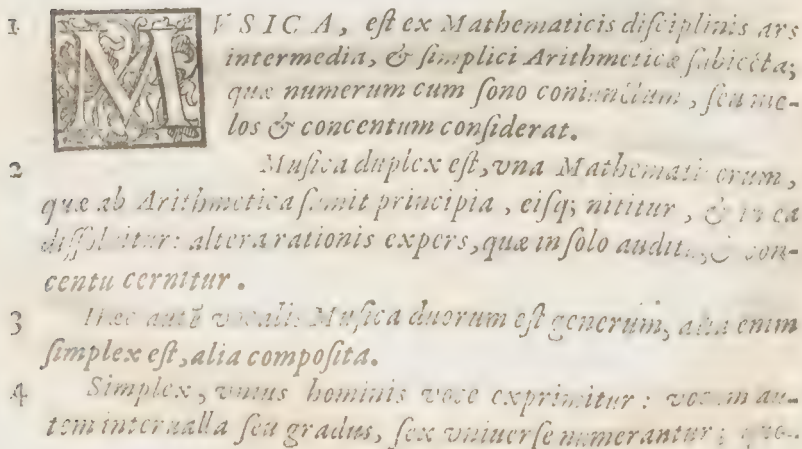 1 MVSICA, eſt ex Mathematicis diſciplinis ars
intermedia, & ſimplici Arithmeticæ ſubiecta;
quæ numerum cum ſono coniunctum, ſeu me-
los & concentum conſiderat.
2 Muſica duplex eſt, vna Mathematicorum,
quæ ab Arithmetica ſumit principia, eiſq; nititur, & in ea
diſſoluitur: altera rationis expers, quæ in ſolo auditu, & con-
centu cernitur.
3 Hæc autē vocalis Muſica duorum eſt generum, alia enim
ſimplex eſt, alia compoſita.
4 Simplex, vnius hominis voce exprimitur: vocum au-
tem interualla ſeu gradus, ſex vniuerſe numerantur: